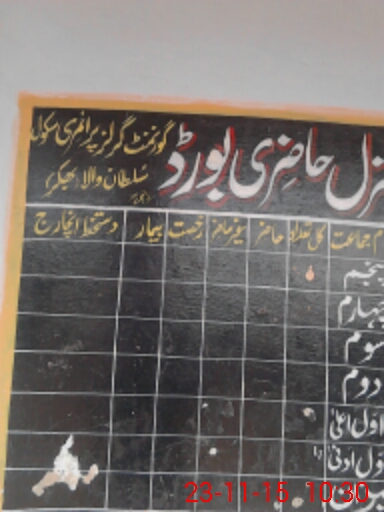 جنرل حاضری بورڈ
گورنمنٹ گرلز پرائمری سکول
سُلطان والا بھکر
نام جماعت کل تعداد حاضر غیر حاضر رخصت بیمار دستخط انچارج
پنجم
چہارم
سوم
دوم
اوّل اعلیٰ
اوّل ادنیٰ
23-11-15 10:30